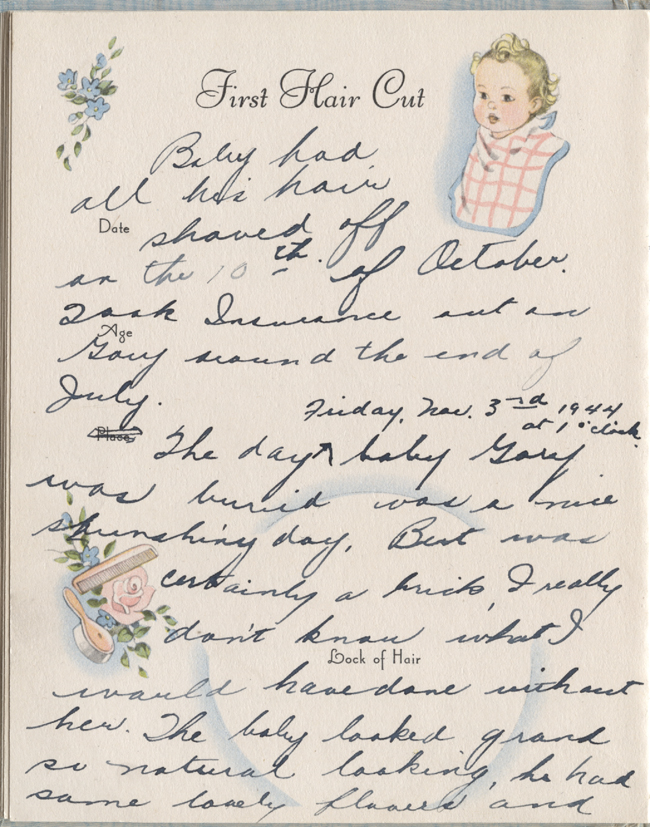 First Hair Cut
Baby had
all his hair
Date
shaved off
on the 10th. of October.
Took Insurance out on
Age
Gary around the end of
July.
Friday, Nov. 3rd 1944
at 1 o'clock.
Place
The day baby Gary
was buried was a nice
shunshiny day, Bert was
certainly a brick, I really
don't know what I
Lock of Hair
would have done without
her. The baby looked grand
so natural looking, he had
some lovely flowers and